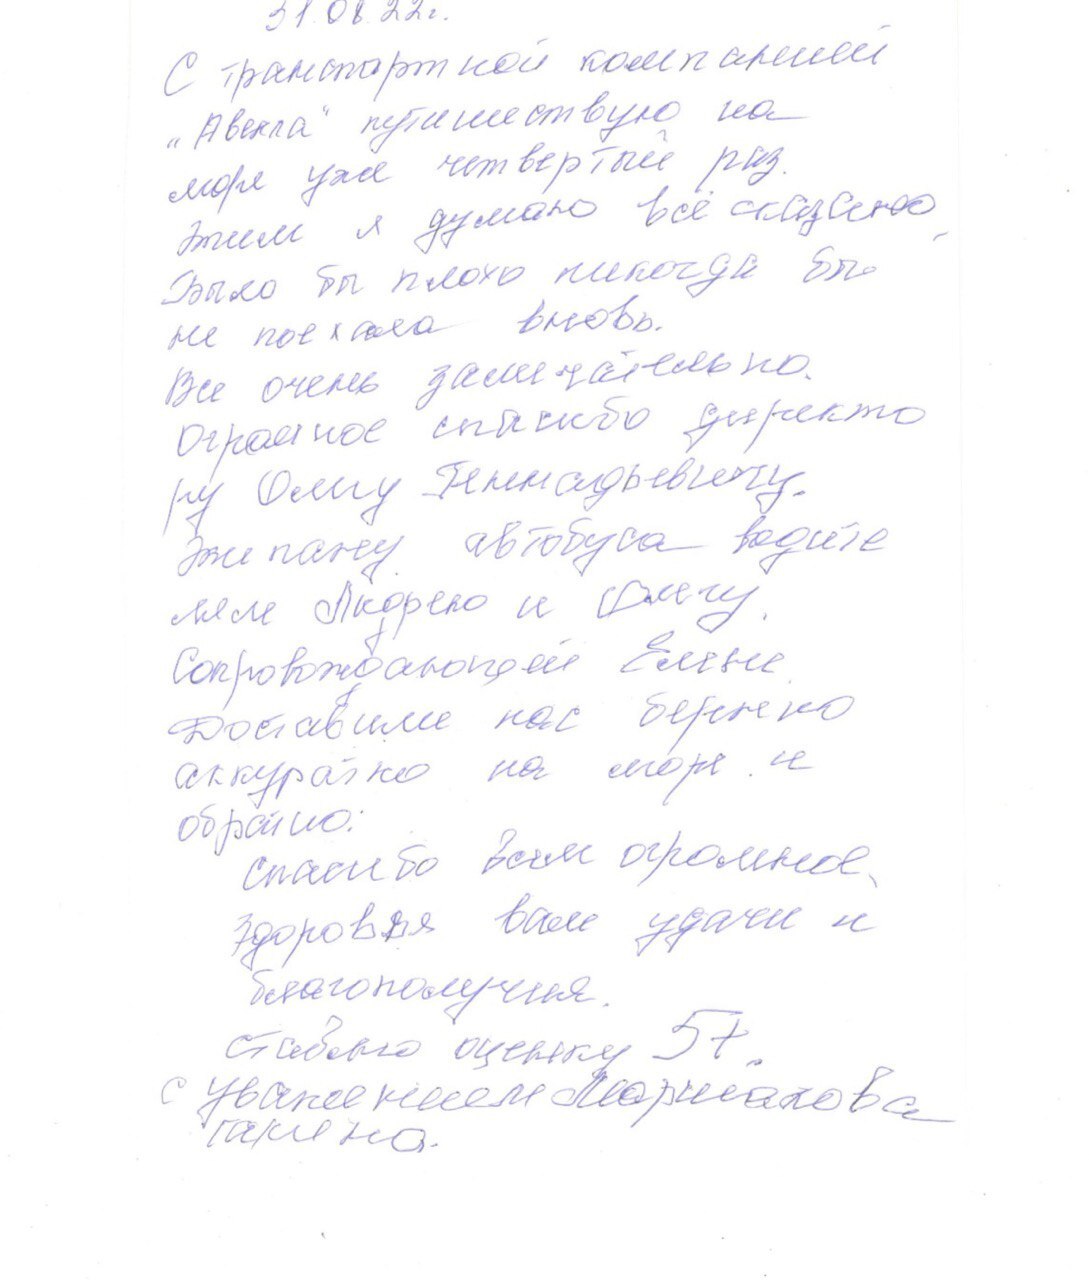 31.08.22г.
С транспортной компанией
„Авекла“ путешествую на
море уже четвертый раз.
Этим я думаю всё сказано.
Было бы плохо никогда бы
не поехала вновь.
Все очень замечательно.
Огромное спасибо директо
ру Олегу Геннадьевичу.
Экипажу автобуса водите
лям Андрею и Олегу.
Сопровождающей Елене.
Доставили нас бережно
аккуратно на море и
обратно.
Спасибо Всем огромное.
Здоровья вам удачи и
благополучия.
Ставлю оценку 5+.
С уважением
Галина.